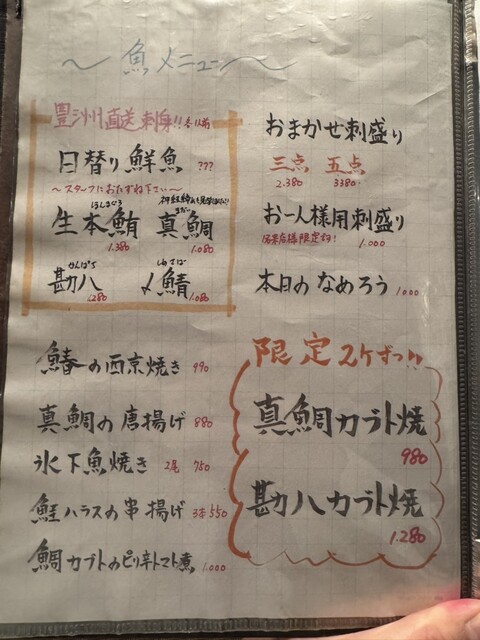 〜 魚メニュー 〜
豊洲直送刺身!! 各1人前
日替り鮮魚 ???
〜スタッフにおたずね下さい〜
ほんまぐろ
生本鮪 1.380
まだい
真鯛 1.080
かんぱち
勘八 1.280
しめさば
〆鯖 1.080
おまかせ刺盛り
三点 五点
2.380 3380
お一人様用刺盛り
1.000
本日のなめろう 1000
鰆の西京焼き 990
真鯛の唐揚げ 880
氷下魚焼き 2尾 750
鮭ハラスの串揚げ 3本 550
鯛カブトのピリ辛トマト煮 1.000
限定2ケずつ!!
真鯛カブト焼
980
勘八カブト焼
1.280